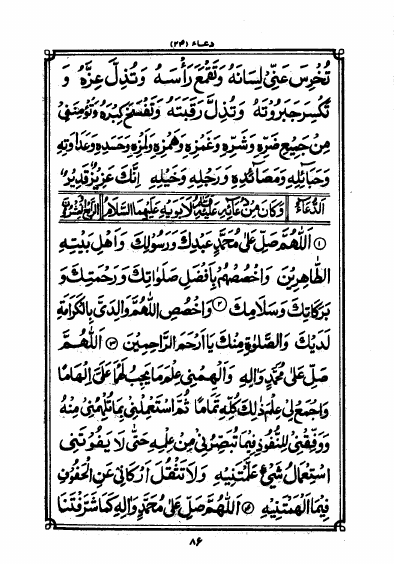 دعاء (۲۴)
تُخْرِسَ عَنِّي لِسَانَهُ وَتَقْمَعَ رَأْسَهُ وَتُذِلَّ عِزَّهُ وَ
تَكْسِرَ جَبَرُوتَهُ وَتُذِلَّ رَقَبَتَهُ وَتَفْسَخَ كِبْرَهُ وَتُؤْمِنَنِي
مِنْ جَمِيعِ ضَرِّهِ وَشَرِّهِ وَغَمْزِهِ وَهَمْزِهِ وَلَمْزِهِ وَحَسَدِهِ وَعَدَاوَتِهِ
وَحَبَائِلِهِ وَمَصَائِدِهِ وَرَجِلِهِ وَخَيْلِهِ إِنَّكَ عَزِيزٌ قَدِيرٌ
الدُّعَاءُ وَكَانَ مِنْ دُعَائِهِ عَلَيْهِ السَّلَامُ لِأَبَوَيْهِ عَلَيْهِمَا السَّلَامُ الرَّابِعُ وَالْعِشْرُونَ
۱ اَللّٰهُمَّ صَلِّ عَلٰى مُحَمَّدٍ عَبْدِكَ وَرَسُولِكَ وَاَهْلِ بَيْتِهِ
الطَّاهِرِينَ وَاخْصُصْهُمْ بِاَفْضَلِ صَلَوَاتِكَ وَرَحْمَتِكَ وَ
بَرَكَاتِكَ وَسَلَامِكَ ۲ وَاخْصُصِ اللّٰهُمَّ وَالِدَيَّ بِالْكَرَامَةِ
لَدَيْكَ وَالصَّلٰوةِ مِنْكَ يَا اَرْحَمَ الرَّاحِمِينَ ۳ اَللّٰهُمَّ
صَلِّ عَلٰى مُحَمَّدٍ وَاٰلِهِ وَاَلْهِمْنِي عِلْمَ مَا يَجِبُ لَهُمَا عَلَيَّ اِلْهَامًا
وَاجْمَعْ لِي عِلْمَ ذٰلِكَ كُلِّهِ تَمَامًا ثُمَّ اسْتَعْمِلْنِي بِمَا تُلْهِمُنِي مِنْهُ
وَوَفِّقْنِي لِلنُّفُوذِ فِيمَا تُبَصِّرُنِي مِنْ عِلْمِهِ حَتّٰى لَا يَفُوتَنِي
اسْتِعْمَالُ شَيْءٍ عَلَّمْتَنِيهِ وَلَا تَثْقُلَ اَرْكَانِي عَنِ الْحُفُوفِ
فِيمَا اَلْهَمْتَنِيهِ اَللّٰهُمَّ صَلِّ عَلٰى مُحَمَّدٍ وَاٰلِهِ كَمَا شَرَّفْتَنَا
۸۶